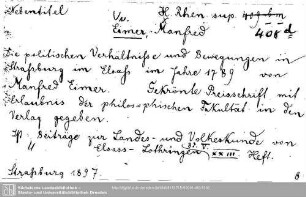 Nebentitel H. Rhen. sup.
Eimer, Manfred 408 d
Die politischen Verhältnisse und Bewegungen in
Straßburg im Elsaß im Jahre 1789 von
Manfred Eimer. Gekrönte Preisschrift mit
Erlaubnis der philosophischen Fakultät in den
Verlag gegeben.
Beiträge zur Landes- und Volkeskunde von
Elsass-Lothringen XXIII Heft.
Straßburg 1897. 8